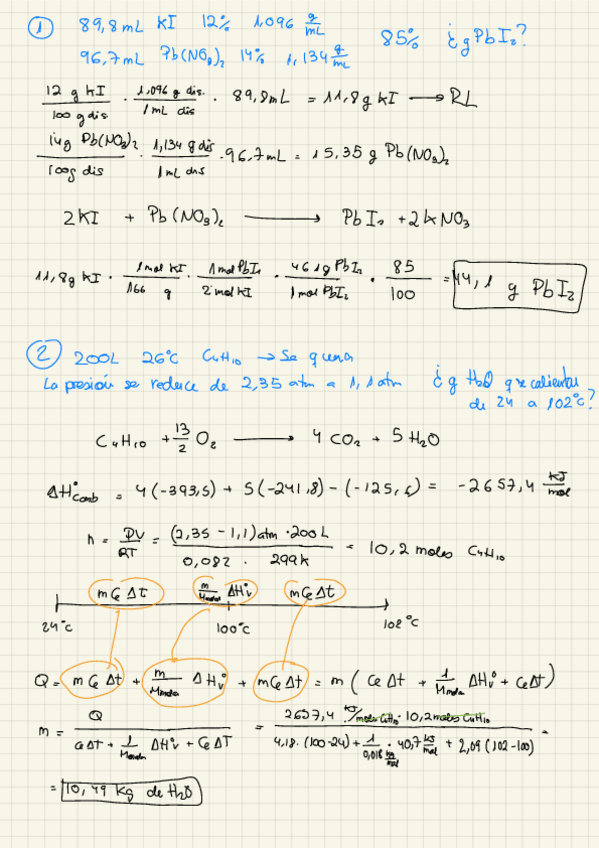 ① 89,8 mL KI 12% 1,096 g/mL
96,7 mL Pb(NO₃)₂ 14% 1,134 g/mL 85% ¿g PbI₂?
12 g KI / 100 g dis · 1,096 g dis. / 1 mL dis · 89,8 mL = 11,8 g KI ⟶ RL
14g Pb(NO₃)₂ / 100g dis · 1,134 g dis / 1 mL dis · 96,7 mL = 15,35 g Pb(NO₃)₂
2KI + Pb(NO₃)₂ ⟶ PbI₂ + 2KNO₃
11,8g KI · 1 mol KI / 166 g · 1 mol PbI₂ / 2 mol KI · 461 g PbI₂ / 1 mol PbI₂ · 85 / 100 = 14,1 g PbI₂
② 200L 26°C C₄H₁₀ → Se quema
La presión se reduce de 2,35 atm a 1,1 atm ¿g H₂O que calientan
de 24 a 102°C?
C₄H₁₀ + 13/2 O₂ ⟶ 4 CO₂ + 5 H₂O
ΔH°comb = 4(-393,5) + 5(-241,8) - (-125,6) = -2657,4 kJ/mol
n = PV/RT = (2,35 - 1,1) atm · 200 L / 0,082 · 299K = 10,2 moles C₄H₁₀
m Ce Δt m/Mmolar ΔH°v m Ce Δt
24°C 100°C 102°C
Q = m Ce Δt + m/Mmolar ΔH°v + m Ce Δt = m ( Ce Δt + 1/Mmolar ΔH°v + CeΔt )
m = Q / CeΔT + 1/Mmolar ΔH°v + CeΔT = 2657,4 kJ/moles C₄H₁₀ · 10,2 moles C₄H₁₀ / 4,18 · (100-24) + 1/0,018 kg/mol · 40,7 kJ/mol + 2,09 (102-100) =
= 10,49 kg de H₂O